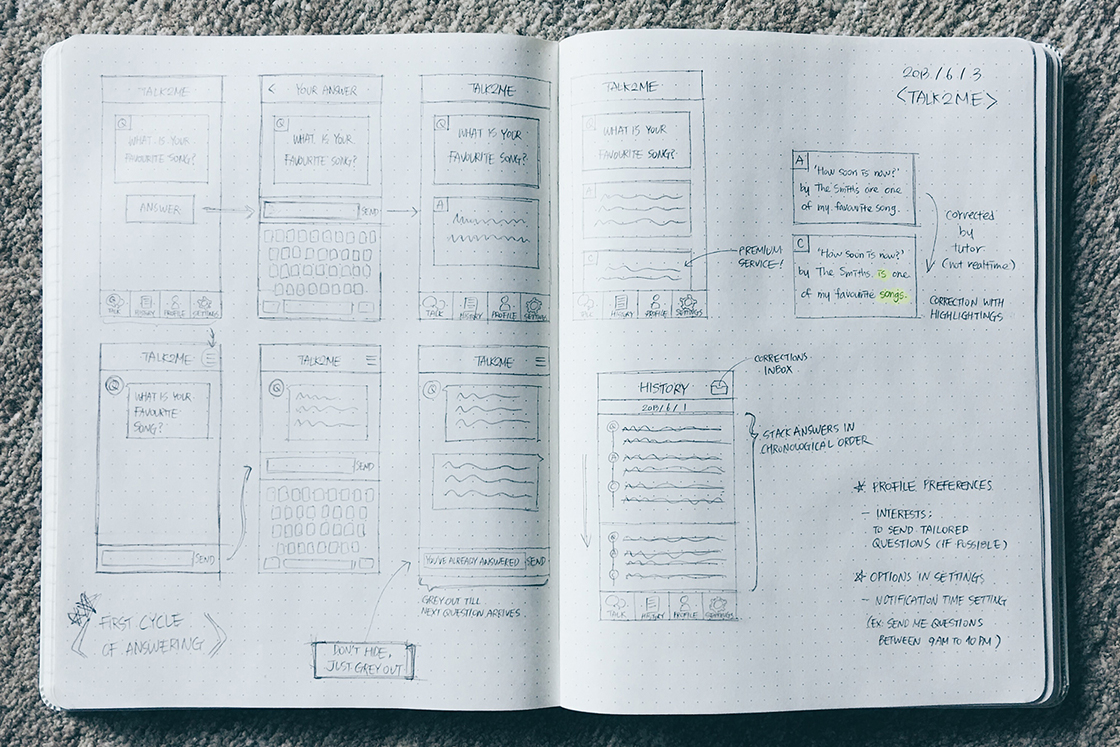 TALK2ME
Q
WHAT IS YOUR
FAVOURITE SONG?
ANSWER
TALK
HISTORY
PROFILE
SETTINGS
< YOUR ANSWER
Q
WHAT IS YOUR
FAVOURITE SONG?
SEND
TALK2ME
Q
WHAT IS YOUR
FAVOURITE SONG?
A
TALK
HISTORY
PROFILE
SETTINGS
TALK2ME
Q
WHAT IS YOUR
FAVOURITE
SONG?
SEND
TALK2ME
Q
SEND
TALK2ME
Q
YOU'VE ALREADY ANSWERED
SEND
GREY OUT TILL
NEXT QUESTION ARRIVES.
FIRST CYCLE
OF ANSWERING
DON'T HIDE,
JUST GREY OUT
TALK2ME
Q
WHAT IS YOUR
FAVOURITE SONG?
A
C
TALK
HISTORY
PROFILE
SETTINGS
PREMIUM
SERVICE!
2013/6/3
<TALK2ME>
A
'How soon is now?'
by The Smiths are one
of my favourite song.
C
'How soon is now?'
by The Smiths. is one
of my favourite songs.
corrected
by
tutor
(not realtime)
CORRECTION WITH
HIGHLIGHTINGS
CORRECTIONS
INBOX
HISTORY
2013/6/1
Q
A
C
Q
A
C
TALK
HISTORY
PROFILE
SETTINGS
STACK ANSWERS IN
CHRONOLOGICAL ORDER
* PROFILE PREFERENCES
- INTERESTS:
TO SEND TAILORED
QUESTIONS (IF POSSIBLE)
* OPTIONS IN SETTINGS
- NOTIFICATION TIME SETTING
(EX: SEND ME QUESTIONS
BETWEEN 9AM TO 10PM)